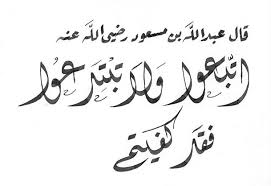 قال عبدالله بن مسعود رضي الله عنه
اتبعوا ولا تبتدعوا
فقد كفيتم